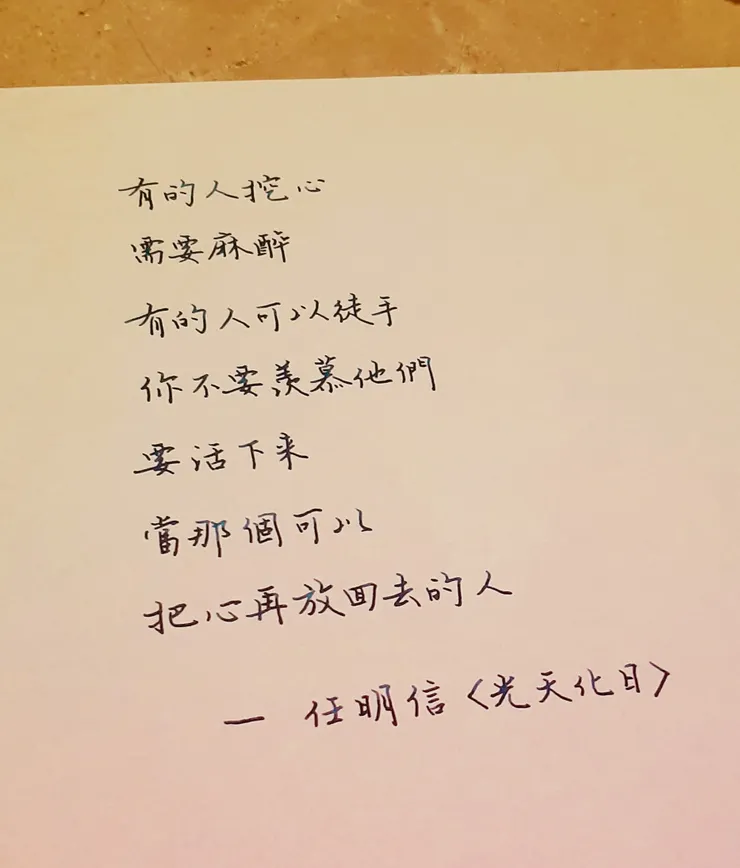 有的人挖心
需要麻醉
有的人可以徒手
你不要羨慕他們
要活下来
當那個可以
把心再放回去的人
— 任明信〈光天化日〉